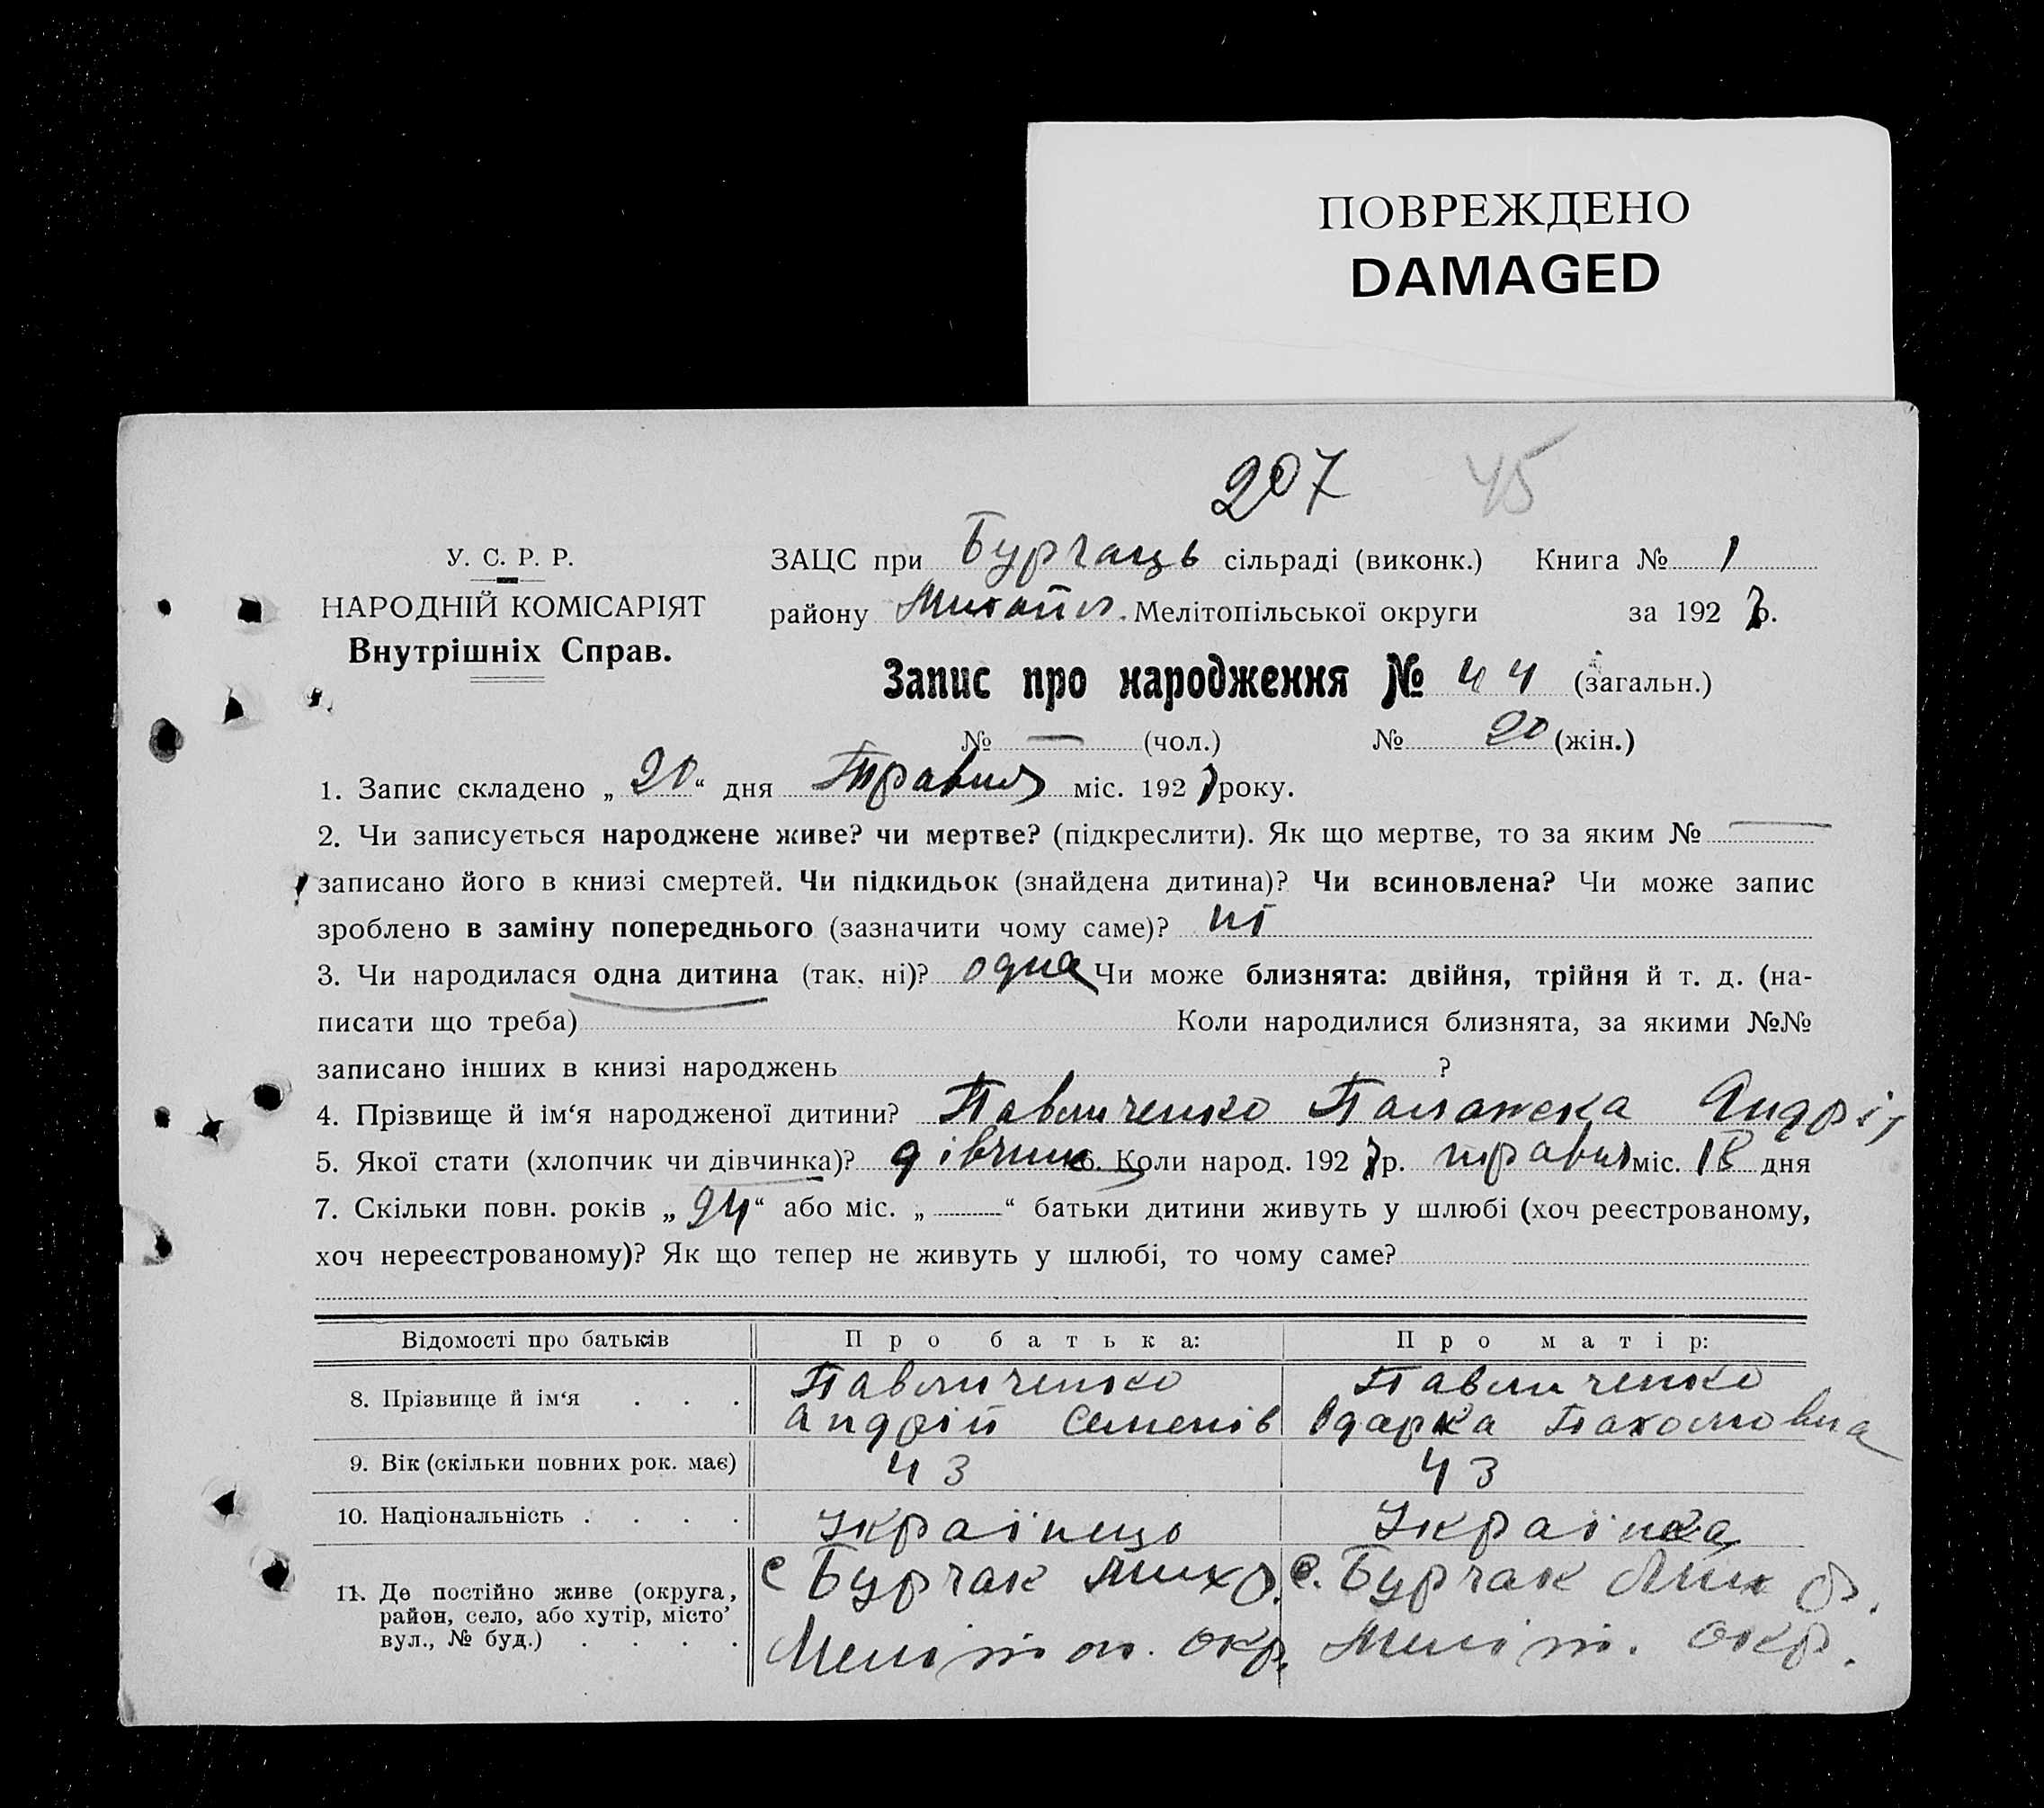 ПОВРЕЖДЕНО
DAMAGED
207 45
У. С. Р. Р.
НАРОДНІЙ КОМІСАРІЯТ
Внутрішніх Справ.
ЗАЦС при Бурчаць сільраді (виконк.) Книга № 1
району Михайл. Мелітопільської округи за 1927 р.
Запис про народження № 44 (загальн.)
№ — (чол.) № 20 (жін.)
1. Запис складено „20“ дня Травня міс. 1927 року.
2. Чи записується народжене живе? чи мертве? (підкреслити). Як що мертве, то за яким № —
записано його в книзі смертей. Чи підкидьок (знайдена дитина)? Чи всиновлена? Чи може запис
зроблено в заміну попереднього (зазначити чому саме)? ні
3. Чи народилася одна дитина (так, ні)? одна Чи може близнята: двійня, трійня й т. д. (на-
писати що треба) Коли народилися близнята, за якими №№
записано інших в книзі народжень ?
4. Прізвище й ім‘я народженої дитини? Павличенко Палажка Андрі
5. Якої стати (хлопчик чи дівчинка)? дівчинк 6. Коли народ. 1927 р. травня міс. 18 дня
7. Скільки повн. років „24“ або міс. „—“ батьки дитини живуть у шлюбі (хоч реєстрованому,
хоч нереєстрованому)? Як що тепер не живуть у шлюбі, то чому саме?
Відомості про батьків Про батька: Про матір:
8. Прізвище й ім‘я . . . Павличенко Андрій Семенів Павличенко Одарка Пахомовна
9. Вік (скільки повних рок. має) 43 43
10. Національність . . . . Українць Українка
11. Де постійно живе (округа, район, село, або хутір, місто’ вул., № буд.) . . . . с Бурчак Мих р. Меліт ол. окр. с. Бурчак Мих р. Меліт. окр.